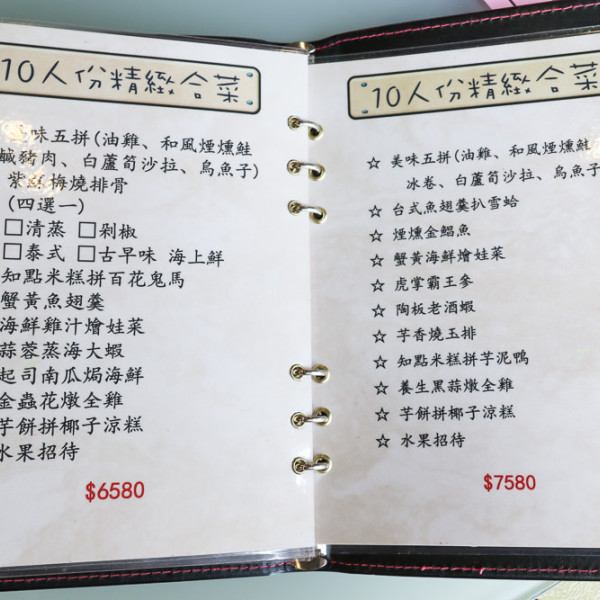 10人份精緻合菜
味五拼(油雞、和風煙燻鮭
鹹豬肉、白蘆筍沙拉、烏魚子)
紫蘇梅燒排骨
(四選一)
□清蒸 □剁椒
□泰式 □古早味 海上鮮
知點米糕拼百花鬼馬
蟹黃魚翅羹
海鮮雞汁燴娃菜
蒜蓉蒸海大蝦
起司南瓜焗海鮮
金蟲花燉全雞
芋餅拼椰子涼糕
水果招待
$6580
10人份精緻合菜
☆ 美味五拼(油雞、和風煙燻鮭
冰卷、白蘆筍沙拉、烏魚子
☆ 台式魚翅羹扒雪蛤
☆ 煙燻金鯧魚
☆ 蟹黃海鮮燴娃菜
☆ 虎掌霸王參
☆ 陶板老酒蝦
☆ 芋香燒玉排
☆ 知點米糕拼芋泥鴨
☆ 養生黑蒜燉全雞
☆ 芋餅拼椰子涼糕
☆ 水果招待
$7580